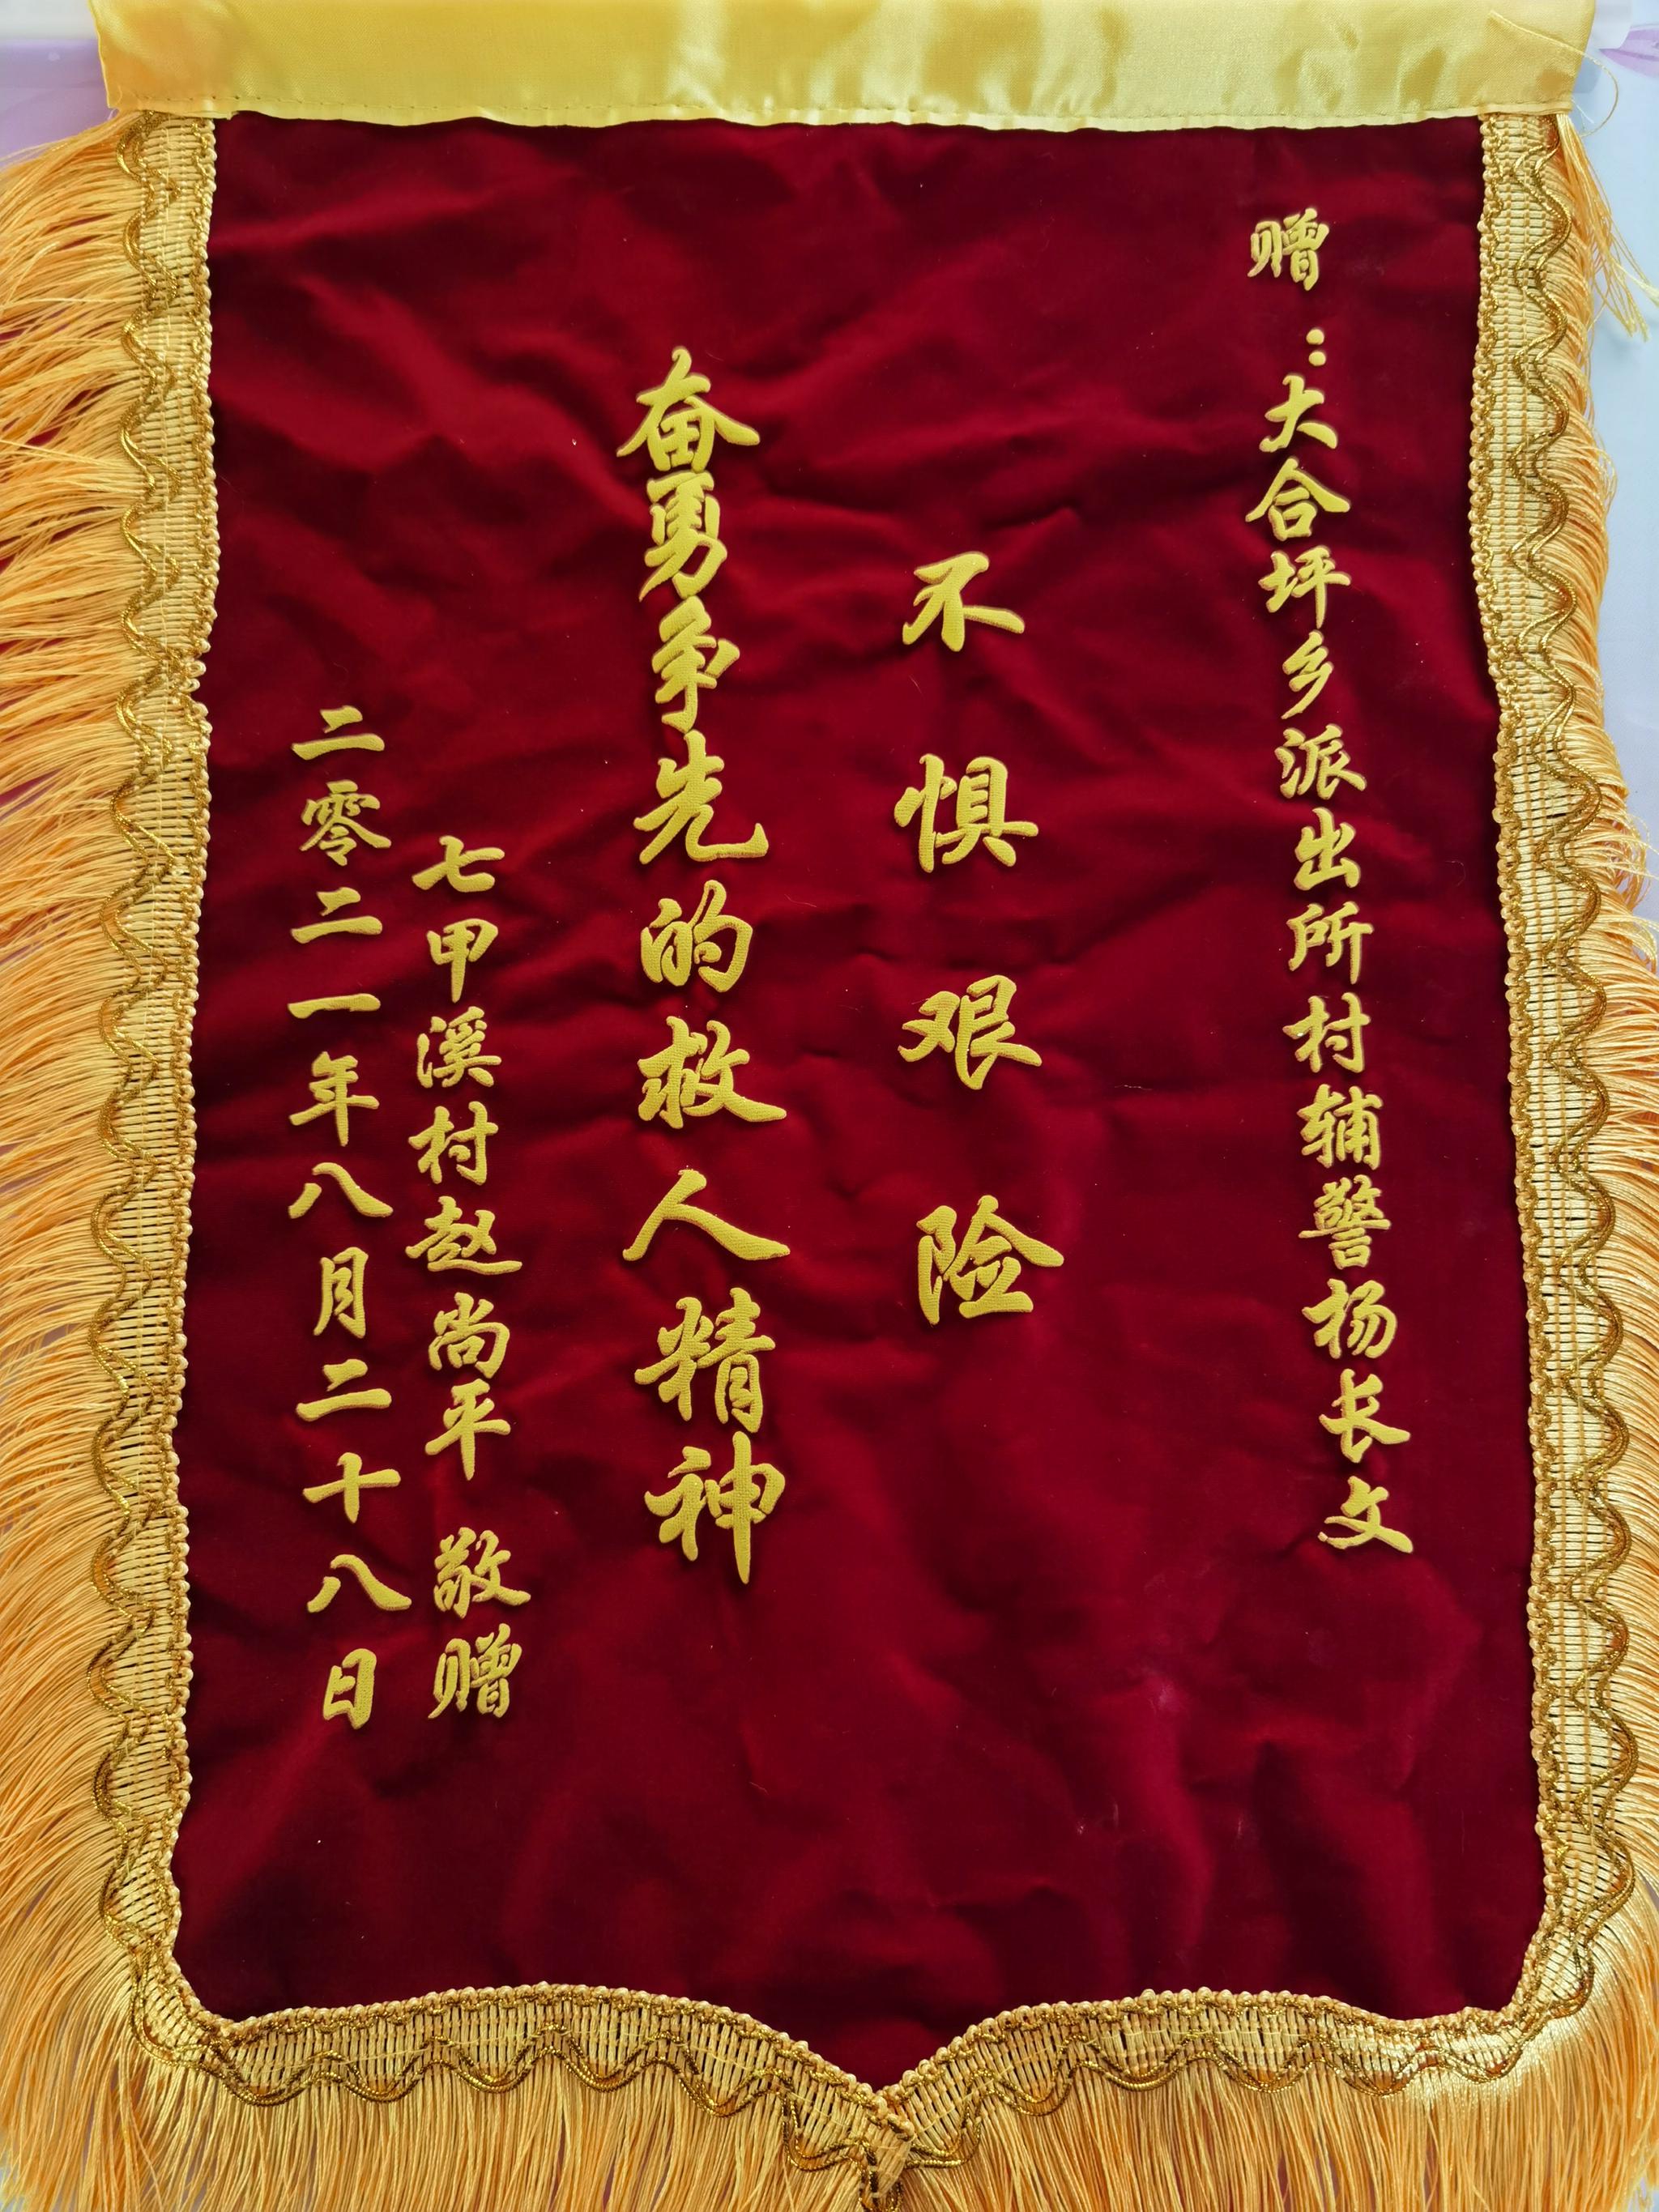 赠：大合坪乡派出所村辅警杨长文
不惧艰险
奋勇争先的救人精神
七甲溪村赵尚平 敬赠
二零二一年八月二十八日